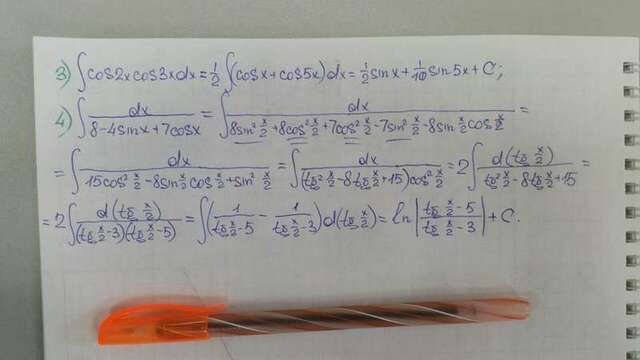 3) ∫cos2x cos3x dx = 1/2 ∫(cosx + cos5x)dx = 1/2 sinx + 1/10 sin5x + C;
4) ∫ dx/(8-4sinx+7cosx) = ∫ dx/(8sin² x/2 + 8cos² x/2 + 7cos² x/2 - 7sin² x/2 - 8sin x/2 cos x/2) =
= ∫ dx/(15cos² x/2 - 8sin x/2 cos x/2 + sin² x/2) = ∫ dx/((tg² x/2 - 8tg x/2 + 15)cos² x/2) = 2∫ d(tg x/2)/(tg² x/2 - 8tg x/2 + 15) =
= 2∫ d(tg x/2)/((tg x/2 - 3)(tg x/2 - 5)) = ∫(1/(tg x/2 - 5) - 1/(tg x/2 - 3))d(tg x/2) = ln|(tg x/2 - 5)/(tg x/2 - 3)| + C.